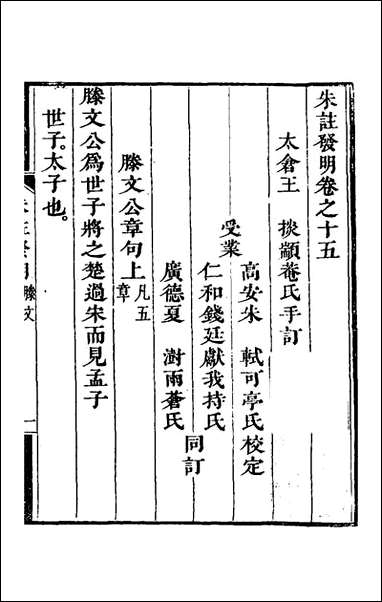 朱註發明卷之十五
太倉王 掞顓菴氏手訂
高安朱 軾可亭氏校定
受業
仁和錢廷獻我持氏
廣德夏 澍雨蒼氏
同訂
滕文公章句上凡五章
滕文公爲世子將之楚過宋而見孟子
世子。太子也。
朱註發明 滕文 一